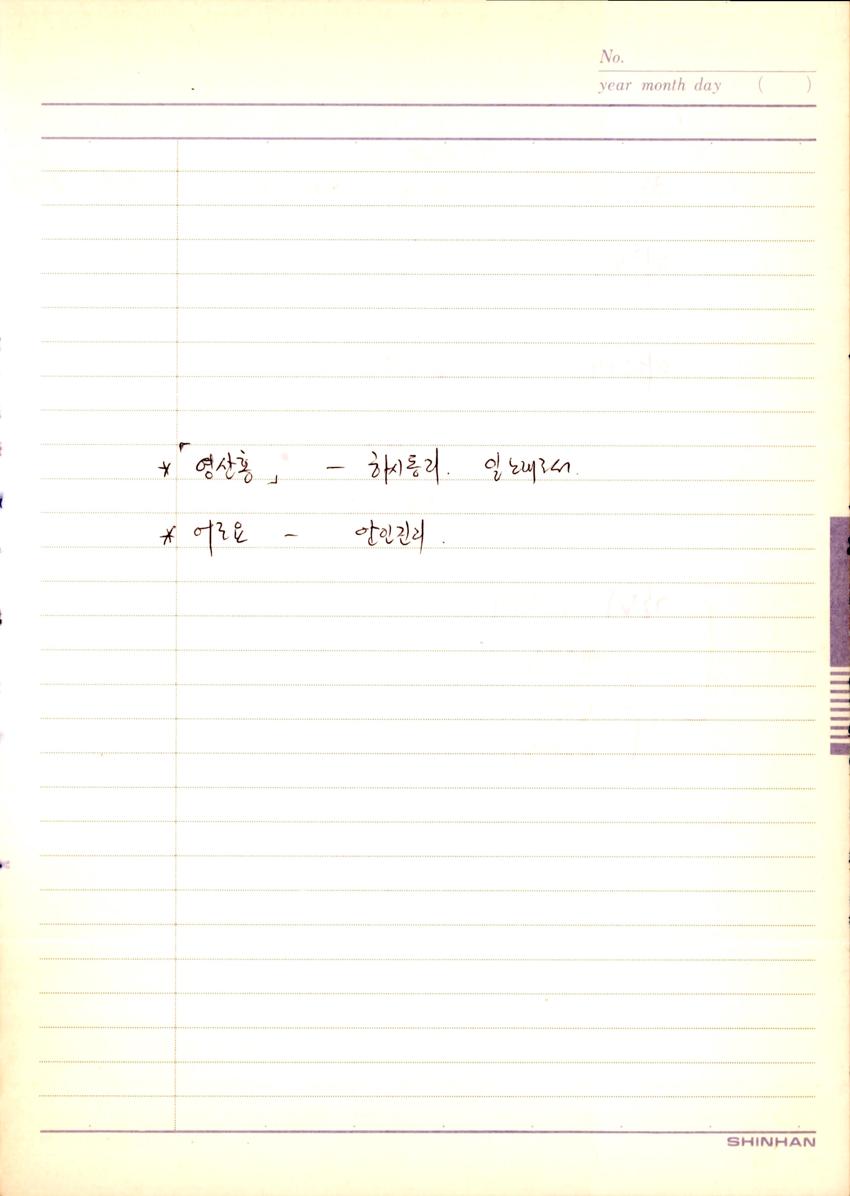 No.
year month day ( )
* 「영산홍」 - 하시동리. 일노래로서.
* 어로요 - 안인진리.
SHINHAN